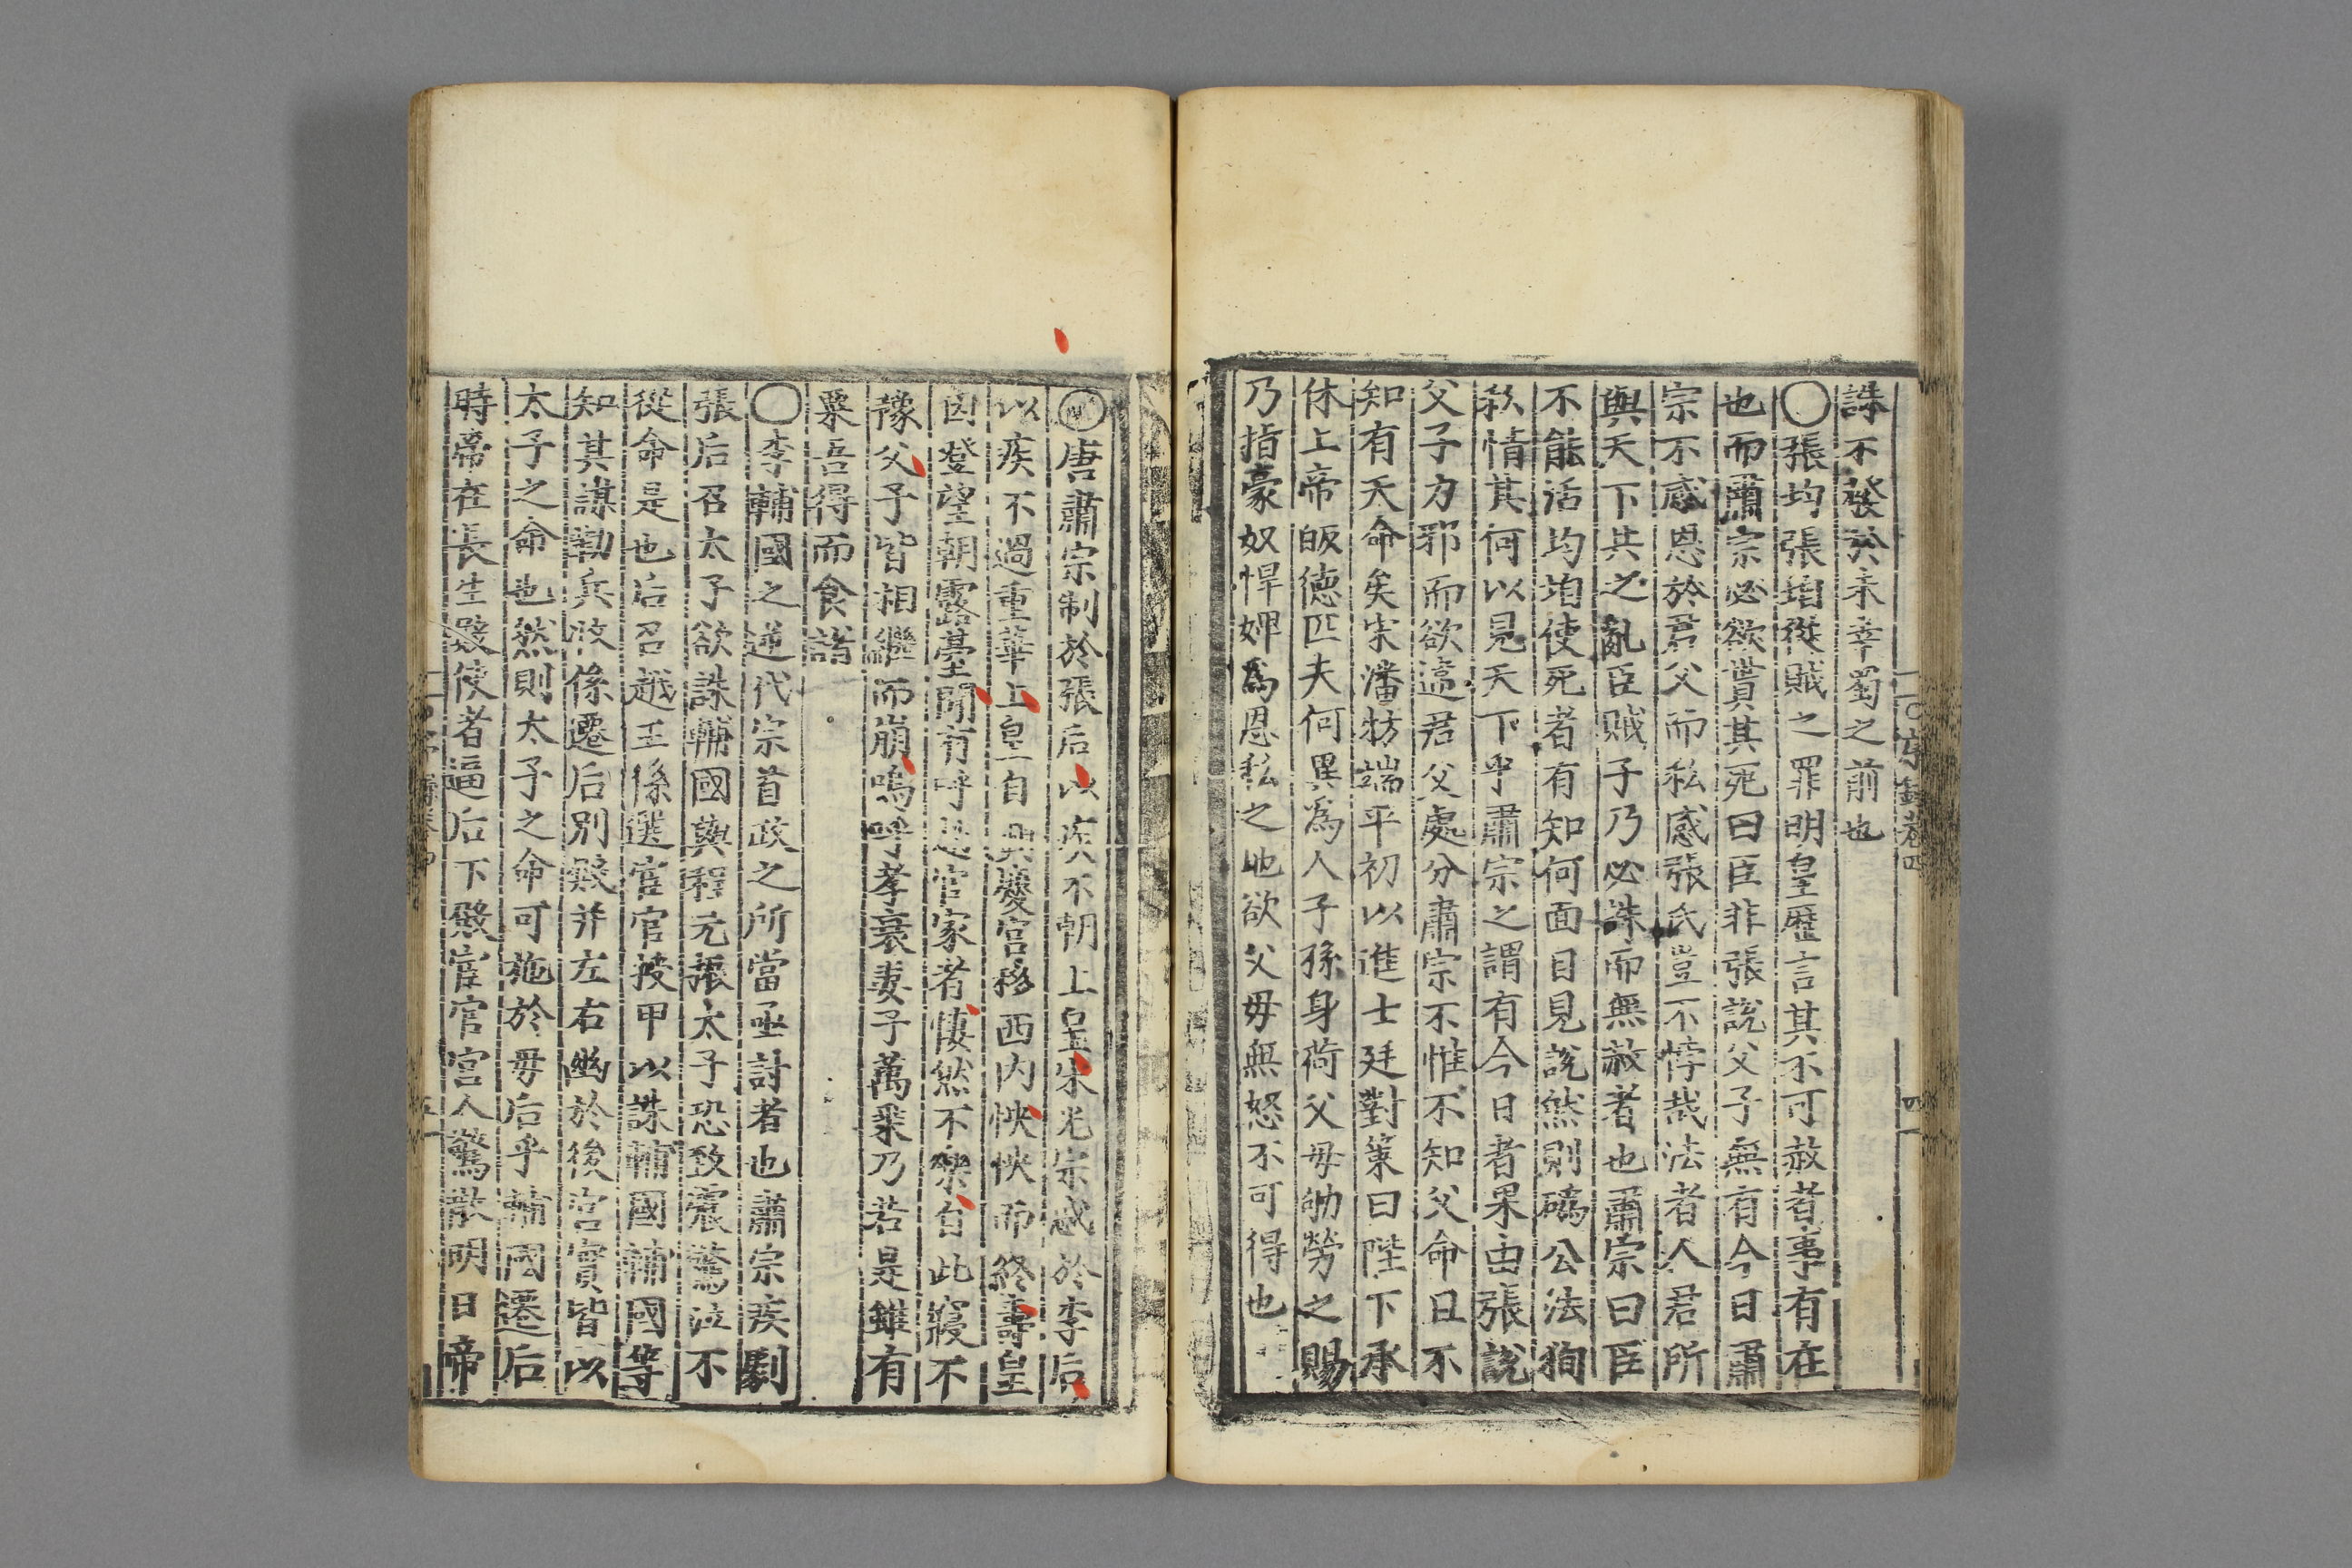 誅不發於未幸蜀之前也
○張均張垍從賊之罪明皇歷言其不可赦者事有在
也而肅宗必欲貰其死曰臣非張說父子無有今日肅
宗不感恩於君父而私感張氏豈不悖哉法者人君所
與天下共之亂臣賊子乃必誅而無赦者也肅宗曰臣
不能活均垍使死者有知何面目見說然則碼公法狥
私情其何以見天下乎肅宗之謂有今日者果由張說
父子力邪而欲違君父處分肅宗不惟不知父命且不
知有天命矣宋潘牥端平初以進士廷對策曰陛下承
休上帝皈德匹夫何異為人子孫身荷父母劬勞之賜
乃指豪奴悍婢為恩私之地欲父母無怒不可得也
○唐肅宗制於張后以疾不朝上皇宋光宗惑於李后
以疾不過重華上皇自興慶宮移西內怏怏而終壽皇
因登望朝露臺聞有呼趙官家者悽然不樂自此寢不
豫父子皆相繼而崩嗚呼孝衰妻子萬乘乃若是雖有
粟吾得而食諸
○李輔國之逆代宗首政之所當亟討者也肅宗疾劇
張后召太子欲誅輔國與程元振太子恐致震驚泣不
從命是也后召越王係選宦官授甲以誅輔國輔國等
知其謀勒兵收係遷后別殿并左右幽於後宮實皆以
太子之命也然則太子之命可施於母后乎輔國遷后
時帝在長生殿使者逼后下殿宦官宮人驚散明日帝